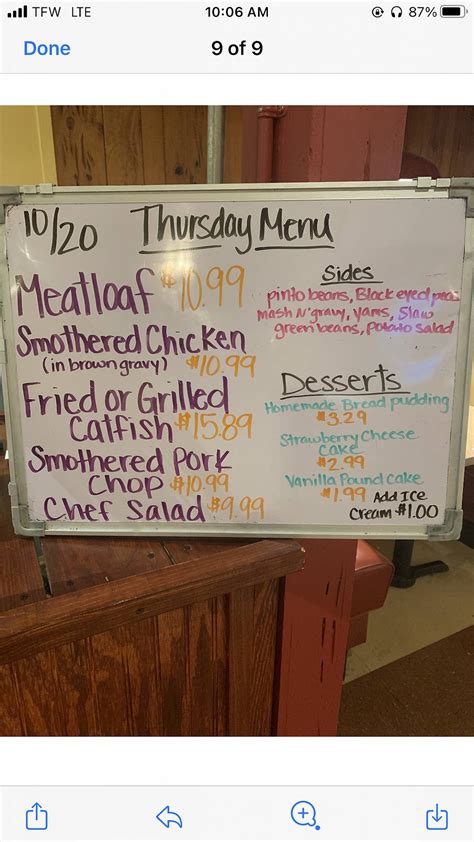 TFW LTE 10:06 AM 87%
Done 9 of 9
10/20 Thursday Menu
Meatloaf $10.99
Smothered Chicken
(in brown gravy) $10.99
Fried or Grilled
Catfish $15.89
Smothered Pork
Chop $10.99
Chef Salad $9.99
Sides
pinto beans, Black eyed peas
mash N' gravy, yams, Slaw
green beans, Potato salad
Desserts
Homemade Bread pudding
$3.29
Strawberry Cheese
Cake
$2.99
Vanilla Pound Cake
$1.99 Add Ice
Cream $1.00